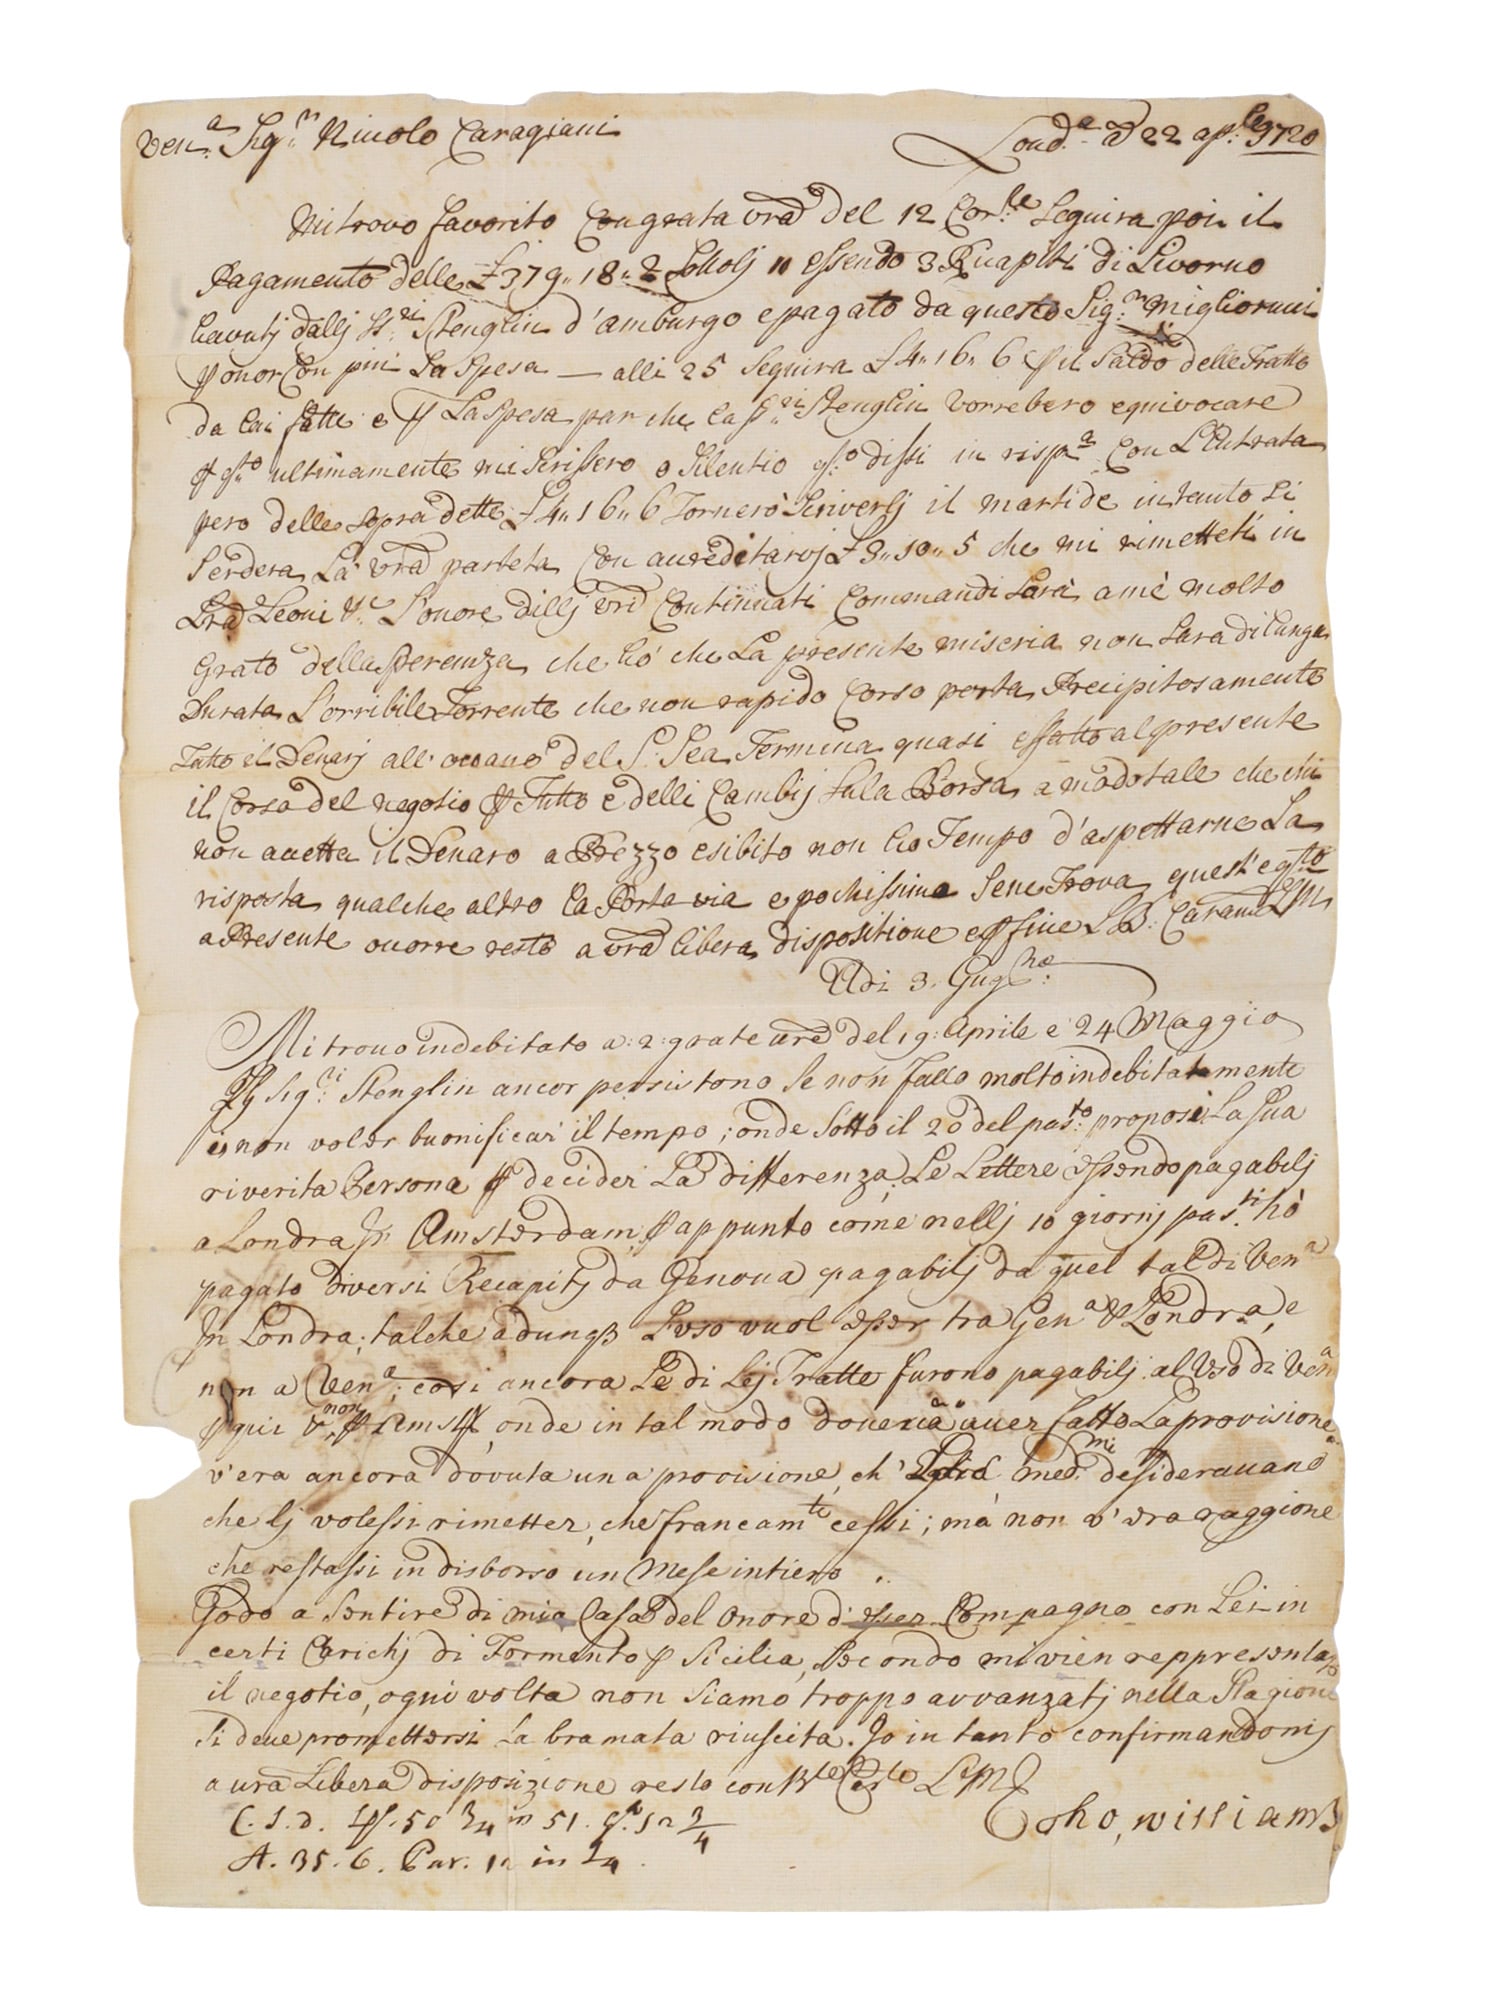 Ven.a Sig.r Nicolo Caragiani Lond.a a 22 ap.le 1720
Mi trovo favorito Con grata vra del 12 Cor.te Seguira poi il
Pagamento delle £ 379" 18" 2 essendo 3 Ricapiti di Livorno
havutj dallj SS.ri Stenglin d'amburgo e pagato da questo Sig.r Migliorucci
onor Con piu La Spesa — alli 25 Seguira £ 4" 16" 6 p il Saldo delle Tratte
da lai fatte e p La Spesa par che la S.ri Stenglin Vorrebero equivocare
p q.to ultimamente mi Scrissero o Silentio q.to dissi in risp.a Con L'Entrata
pero delle sopra dette £ 4" 16" 6 Tornerò Scriverlj il martide intanto si
La vra parteta Con accreditarvj £ 3" 10" 5 che mi rimetteti in
Leoni &c L'onore dellj vri Continuati Commandi Sarà a mè molto
Grato della Sperenza che hò che La presente miseria non Sara di lunga
Durata L'orribile Torrente che non rapido Corso porta Precipitosamente
Tutto il Denarj all' occano del S: Sea Termina quasi affatto al presente
il Corso del negotio p Tutto e delli Cambij Sula Borsa a modo tale che chi
non accetta il Denaro a Prezzo esibito non ha Tempo d'aspettarne La
risposta qualche altro la Porta via e pochissima Sene Trova quest' e q.to
a Presente ocorre resto a vra libera dispositione e p fine L B: Caram.te LM
Adi 3. Gug.no
Mi trovo indebitato a: 2: grate vre del 19: Aprile e 24 Maggio
Sig.ri Stenglin ancor persistono Se non fallo molto indebitatamente
è non voler buonificar' il tempo; onde Sotto il 20 del pas.to proposi La Sua
riverita Persona p decider La differenza; Le Lettere essendo pagabilj
a Londra In Amsterdam, p appunto come nellj 10 giornj pas.ti hò
pagato diversi Recapitj da Genova pagabilj da quel tal di Ven.a
In Londra; talche adunq Luso vuol esser tra Gen.a & Londra, e
non a Ven.a; cosi ancora Le di Lej Tratte furono pagabilj al Uso di Ven.a
p qui non p Amst, onde in tal modo doveria aver fatto La provisione
v'era ancora dovuta una provisione, ch' med.mi desideravano
che lj volessi rimetter, che francam.te cessi; mà non v'era raggione
che restassi in disborso un Mese intiero .
Godo a Sentire di mia Casa del Onore d'esser Compagno con Lei in
certi Carichj di Formento p Sicilia, Secondo mi vien reppresenta.to
il negotio, ogni volta non Siamo troppo avvanzatj nella Stagione
Si deve promettersi La bramata riuscita. Io in tanto confirmandomj
a vra Libera disposizione resto con LM
C. S. d. 50 3/4 in 51. 52 3/4
A. 35. 6. Par.
Joho, williams